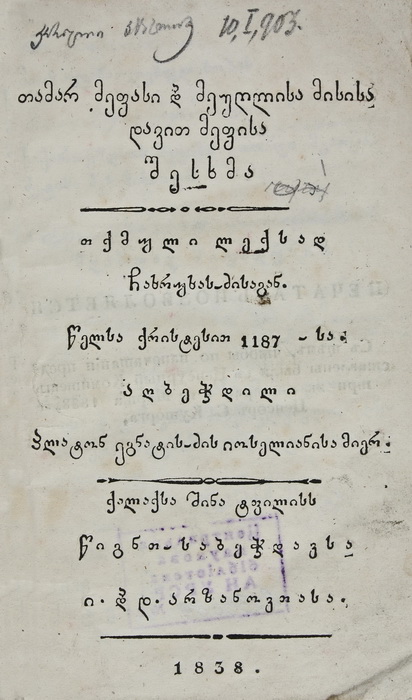 10, I, 903.
თამარ მეფასი და მეუღლისა მისისა
დავით მეფისა
შესხმა
თქმული ლექსად
ჩახრუხას-ძისაგან.
წელსა ქრისტესით 1187 -სა:
აღბეჭდილი
პლატონ ეგნატის-ძის იოსელიანისა მიერ.
ქალაქსა შინა ტფილისს
წიგნთ-საბეჭდავსა
ი. და დ. არზანოვთასა.
1838.